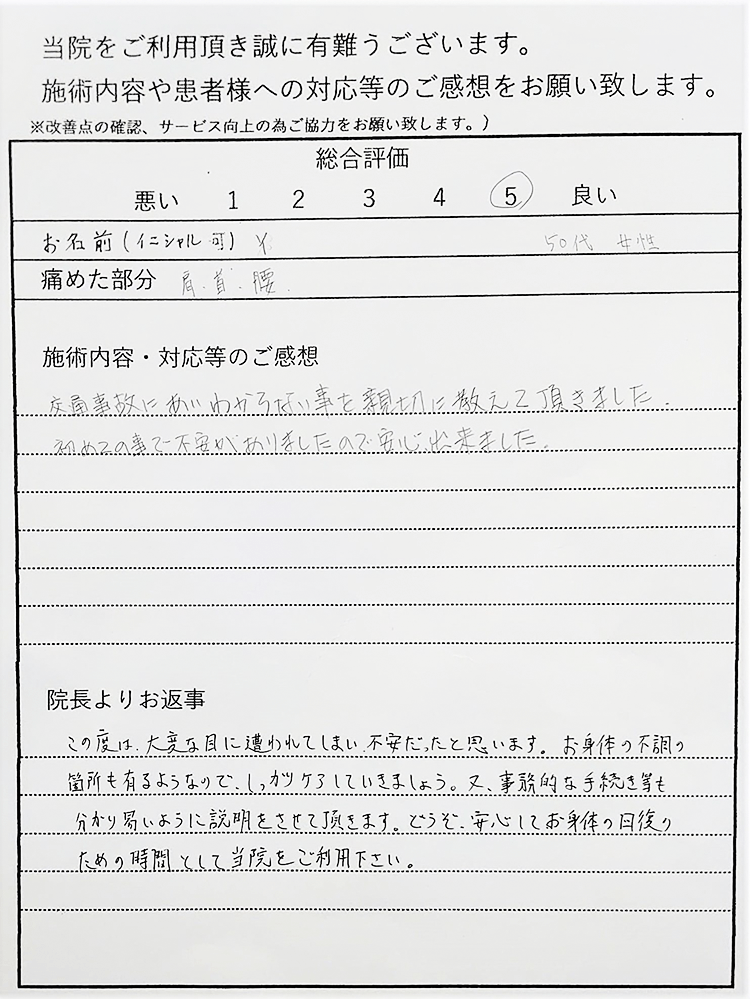 当院をご利用頂き誠に有難うございます。
施術内容や患者様への対応等のご感想をお願い致します。
※改善点の確認、サービス向上の為ご協力をお願い致します。)
総合評価
悪い 1 2 3 4 5 良い
お名前(イニシャル可) Y 50代 女性
痛めた部分 肩.首.腰.
施術内容・対応等のご感想
交通事故にあいわからない事を親切に教えて頂きました.
初めての事で不安がありましたので安心出来ました.
院長よりお返事
この度は、大変な目に遭われてしまい、不安だったと思います。お身体の不調の
箇所も有るようなので、しっかりケアしていきましょう。又、事務的な手続き等も
分かり易いように説明をさせて頂きます。どうぞ、安心してお身体の回復の
ための時間として当院をご利用下さい。